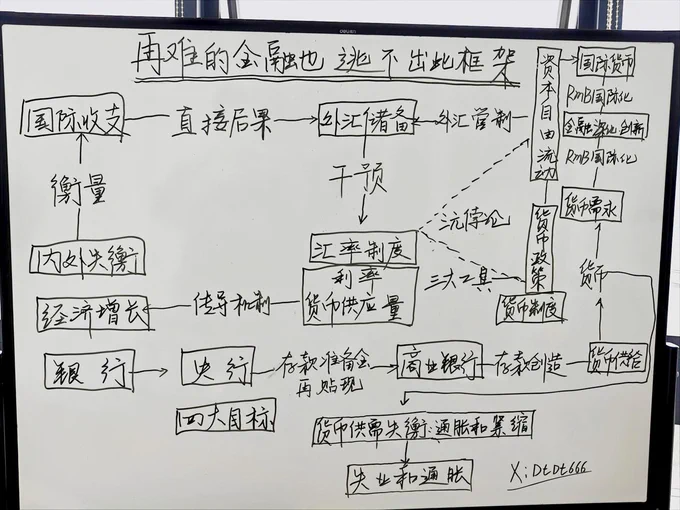 再难的金融也逃不出此框架
国际收支
直接后果
外汇储备
外汇管制
资本自由流动
国际货币
RmB国际化
金融深化创新
RmB国际化
衡量
干预
货币需求
内外失衡
汇率制度
三元悖论
货币政策
货币
经济增长
传导机制
利率
货币供应量
三大工具
货币制度
银行
央行
存款准备金
再贴现
商业银行
存款创造
货币供给
四大目标
货币供需失衡:通胀和紧缩
失业和通胀
X:DtDt666